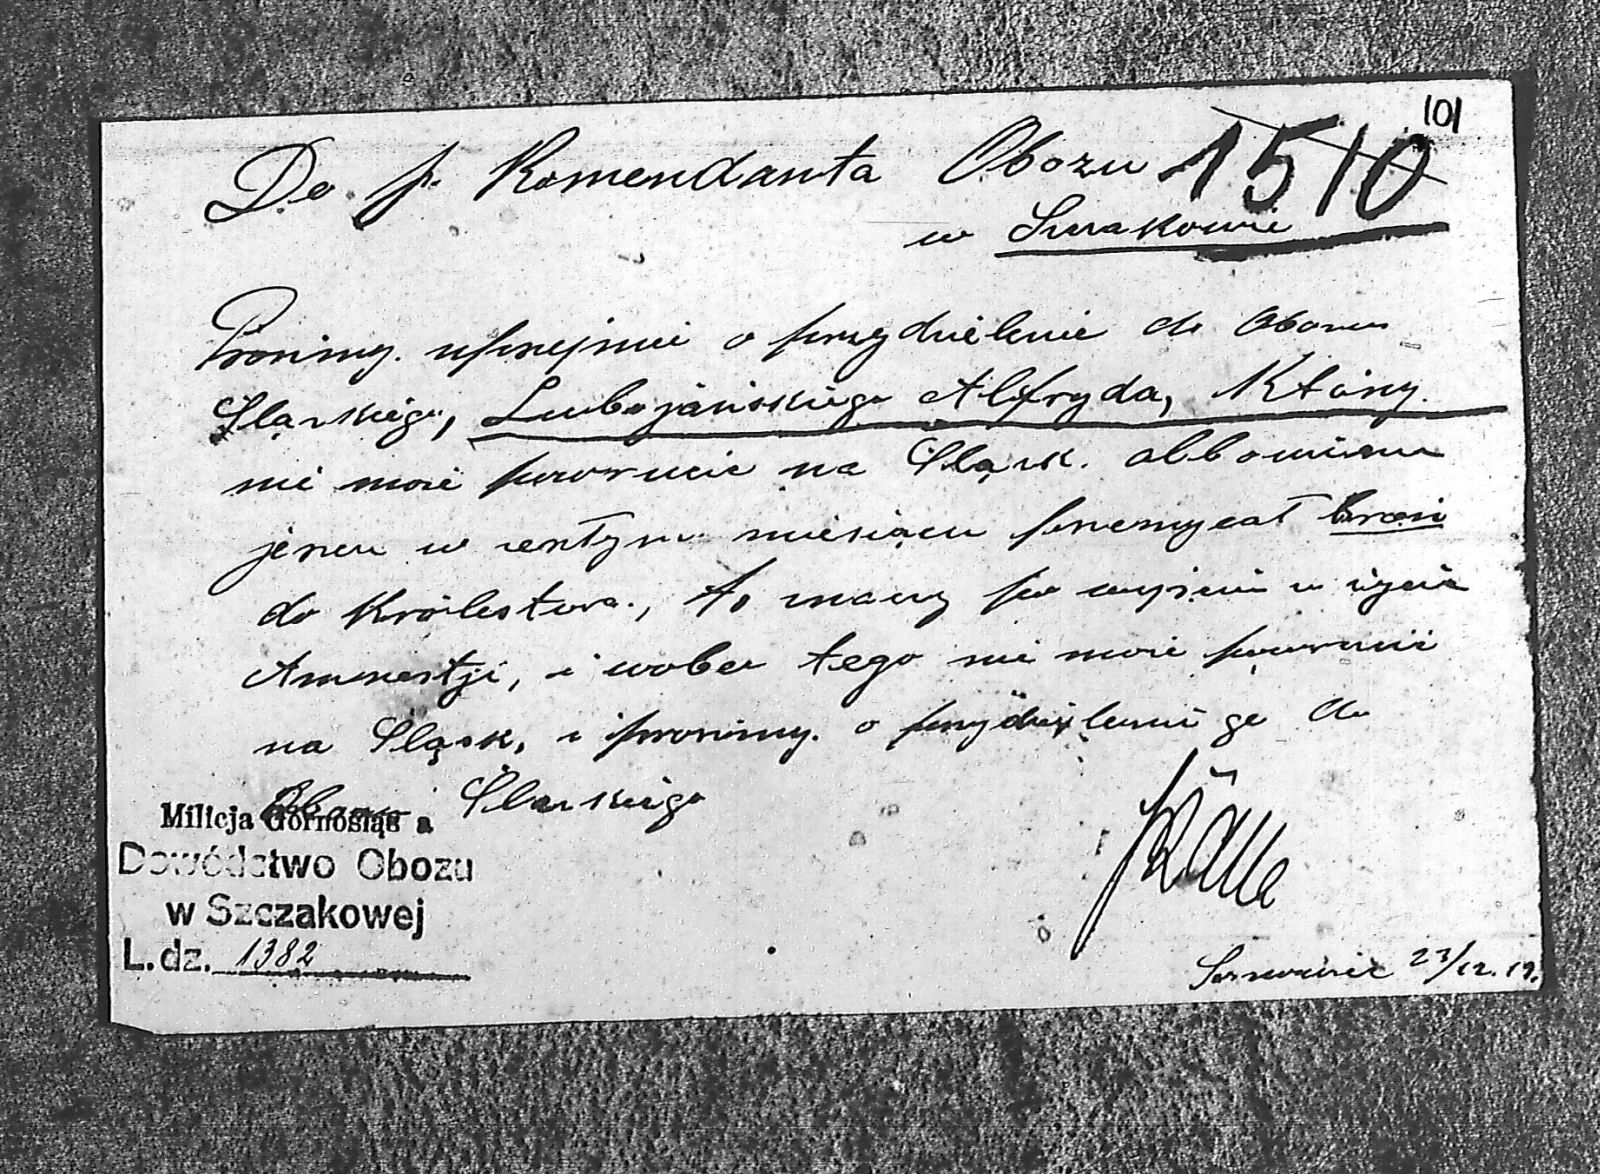 101
Do p. Komendanta Obozu 1510
w Szczakowie
Prosimy uprzejmie o przydzielenie do Obozu
Śląskiego, Lubojańskiego Alfryda, Który
nie może powrucic na Śląsk. albowiem
jeszcze w zeszłym miesiącu przemycał broń
do Królestwa, to znaczy po wyjściu w życie
Amnestji, i wobec tego nie może powrucić
na Śląsk, i prosimy o przydzielenie go do
Obozu Śląskiego
Milicja Górnośląs a
Dowództwo Obozu
w Szczakowej
L. dz. 1382
Sosnowiec 23/12.19.